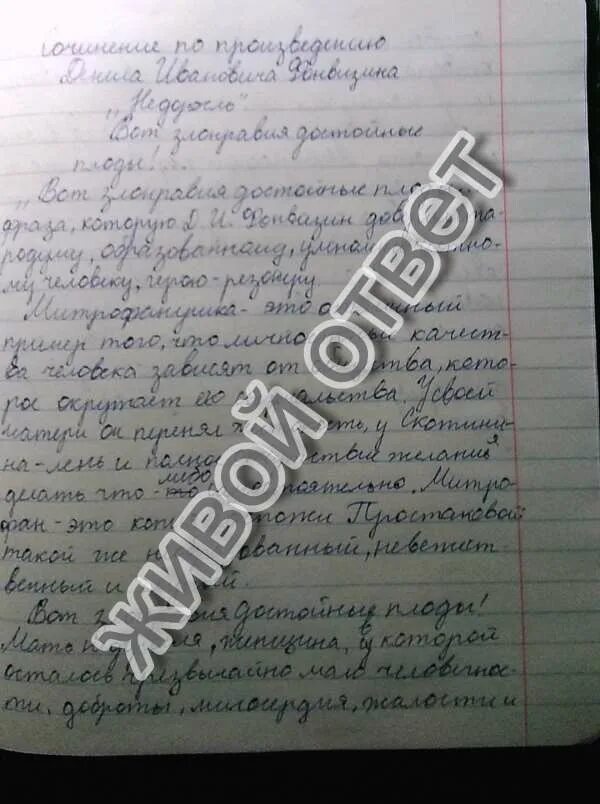 сочинение по произведению
Дениса Ивановича Фонвизина
„Недоросль"
Вот злонравия достойные
плоды!
„Вот злонравия достойные
фраза, которую Д. И. Фонвизин
родуму, образованному,
му человеку, герою-резонеру.
Митрофанушка - это
пример того, что качест-
ва человека зависят от кото-
рое окружает его с У своей
матери он перенял у Скотини-
на - лень и желания
делать что-либо Митро-
фан - это госпожи Простаковой
такой же невежест-
венный и
Вот достойные плоды!
Мать женщина, в которой
осталось чрезвычайно мало человечнос-
ти, доброты, милосердия, жалости и
ЖИВОЙ ОТВЕТ